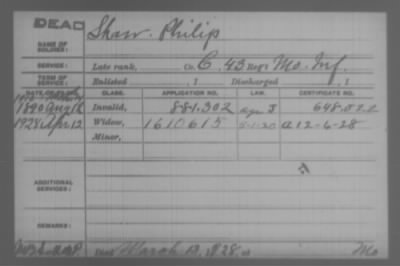 DEAD
Shaw. Philip
NAME OF SOLDIER:
SERVICE: Late rank, Co. C, 43 Reg't Mo. Inf.
TERM OF SERVICE: Enlisted , 1 Discharged , 1
CLASS. APPLICATION NO. LAW. CERTIFICATE NO.
1890 Aug 18 Invalid, 881.302 648.022
1928 Apr 12 Widow, 1610615 5-1-20 A 12-6-28
Minor,
ADDITIONAL SERVICES:
REMARKS:
Died March 19, 1928, at Mo